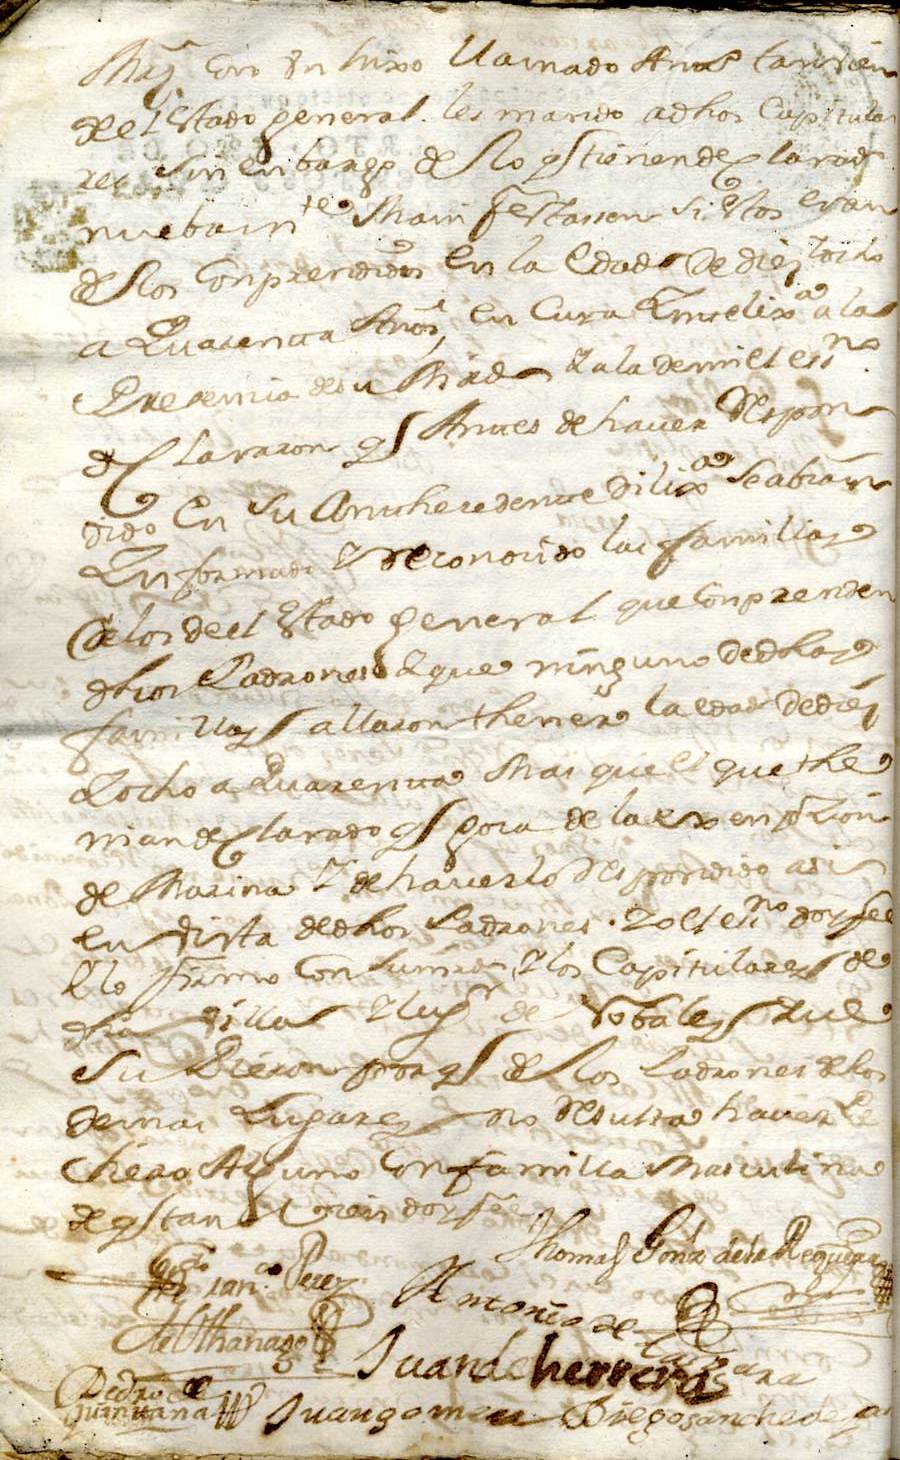 con un hixo llamado tanvien
de el estado general. les mando a dhos Capitula
res sin enbargo de lo qe tienen declarado
nuebamte Manifestassen si estos eran
de los Conprendidos en la edad de diez y ocho
a Quarenta años, en Cuia a la
Presencia de su Md y a la de mi el essno
declararon qe antes de haver Respon
dido en su antheredente dilixa se abian
Informado y Reconocido las familias
de los de el estado general que Conprenden
dhos Padrones y que ninguno de dhas
familias allaron thener la edad de diez
y ocho a Quarenta Mas que el que the
nian declarado qe goza de la exenpzion
de Marina y de haverlo Respondido asi
en vista de dhos Padrones. Yo el essno doy fee
y lo firmo con su md y los Capitulares de
dha villa y lugr de Robales que
supieron porqe de los Padrones de los
demas Lugares no Resulta haver Pe
chero Alguno Con familia Masculina
de qe tanvien doy fee
Thomas Gonz de la Reguera
Perez
Antonio de
Juan de herrera
Pedro de
quintana
Juan gomez Diego sanchez de